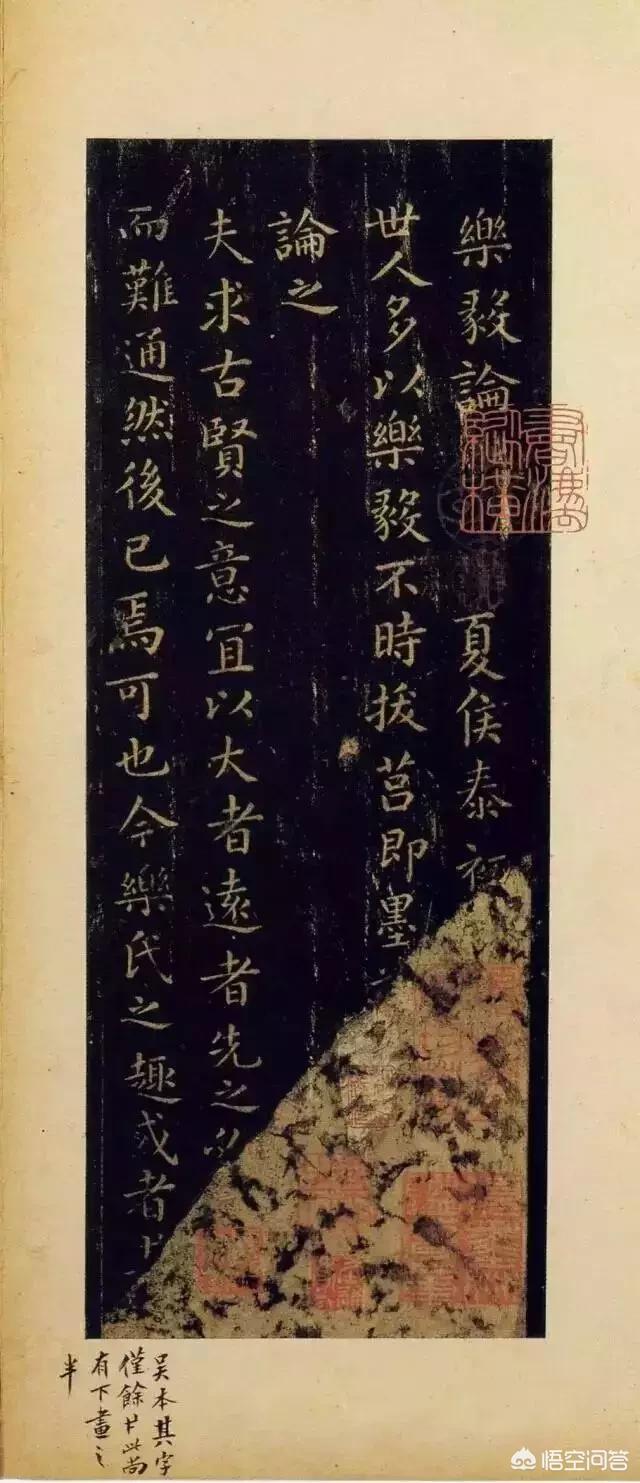 樂毅論 夏侯泰
世人多以樂毅不時拔莒即墨
論之
夫求古賢之意宜以大者遠者先之
而難通然後已焉可也今樂氏之趣或者
吴本其字
僅餘 此尚
有下畫之
半
悟空问答